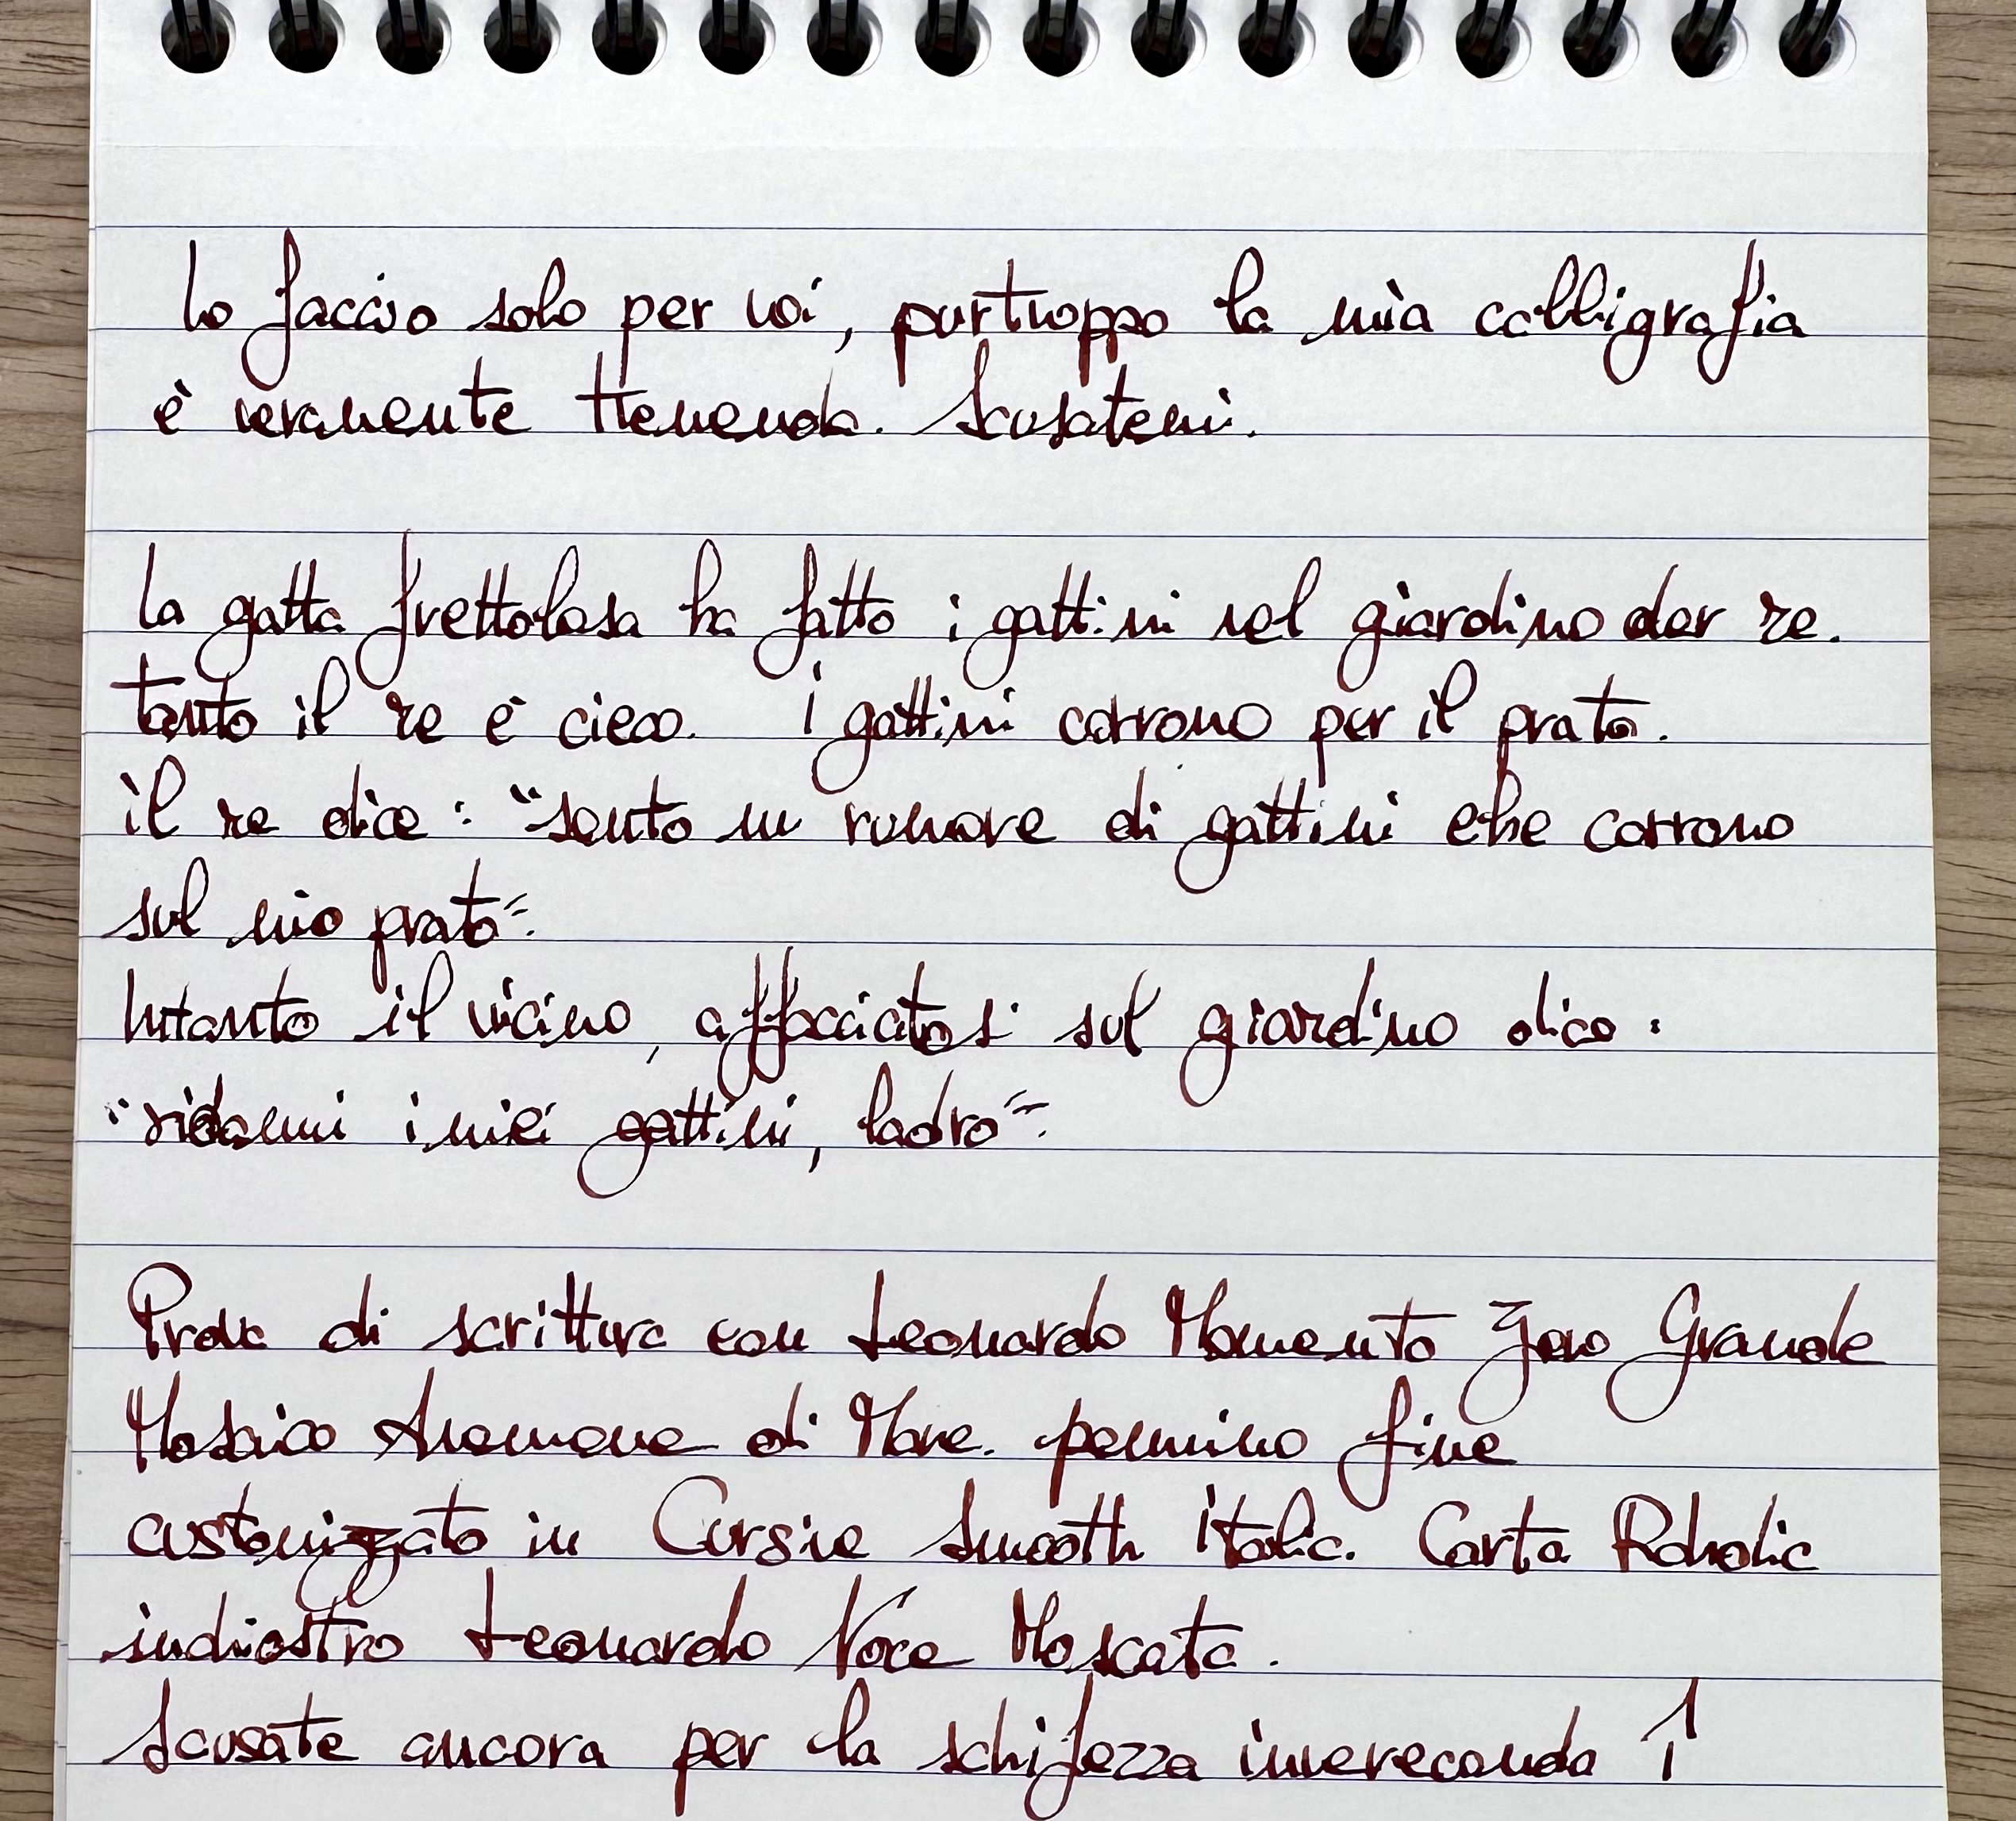 Lo faccio solo per voi, purtroppo la mia calligrafia
è veramente tremenda. Scusatemi.
La gatta frettolosa ha fatto i gattini nel giardino der re.
tanto il re è cieco. I gattini corrono per il prato.
il re dice: "sento un rumore di gattini che corrono
sul mio prato".
Intanto il vicino, affacciatosi sul giardino dice:
"ridammi i miei gattini, ladro".
Prova di scrittura con Leonardo Momento Zero Grande
Mosaico Anemone di Mare. pennino fine
customizzato in Cursive Smooth Italic. Carta Rohdia
inchiostro Leonardo Noce Moscata.
Scusate ancora per la schifezza invereconda